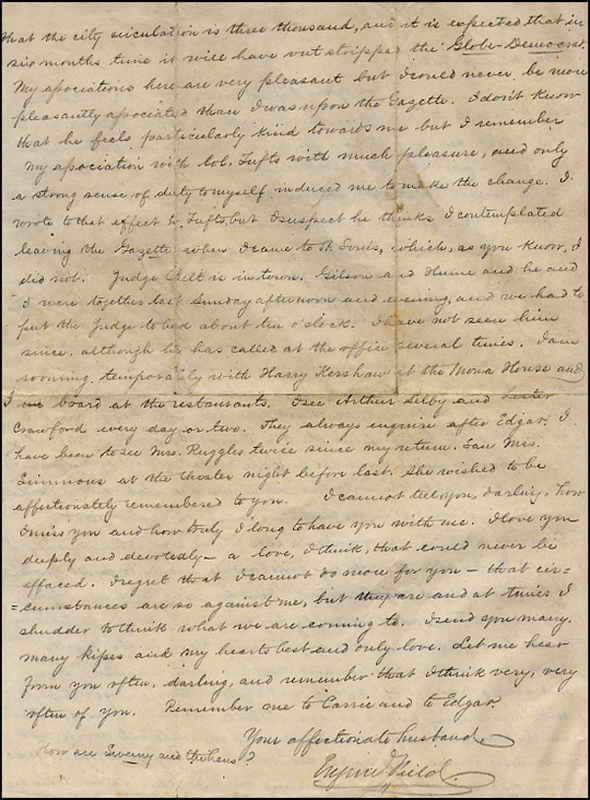 that the city circulation is three thousand, and it is expected that in
six months time it will have out stripped the Globe-Democrat.
My associations here are very pleasant but I could never be more
pleasantly associated than I was upon the Gazette. I don't know
that he feels particularly kind towards me but I remember
my association with Col. Tufts with much pleasure, and only
a strong sense of duty to myself induced me to make the change. I
wrote to that effect to Tufts, but I suspect he thinks I contemplated
leaving the Gazette when I came to St. Louis, which, as you know, I
did not. Judge Belt is in town. Gilson and Hume and he and
I were together last Sunday afternoon and evening, and we had to
put the Judge to bed about ten o'clock. I have not seen him
since, although he has called at the office several times. I am
rooming temporarily with Harry Kershaw at the Mona House and
I board at the restaurants. I see Arthur Selby and Lester
Crawford every day or two. They always enquire after Edgar. I
have been to see Mrs. Ruggles twice since my return. Saw Mrs.
at the theater night before last. She wished to be
affectionately remembered to you. I cannot tell you, darling, how
I miss you and how truly I long to have you with me. I love you
deeply and devotedly — a love, I think, that could never be
effaced. I regret that I cannot do more for you — that cir=
=cumstances are so against me, but they are and at times I
shudder to think what we are coming to. I send you many,
many kisses and my hearts best and only love. Let me hear
from you often, darling, and remember that I think very, very
often of you. Remember me to Carrie and to Edgar.
Your affectionate husband,
Eugene Field.
How are and the hens?